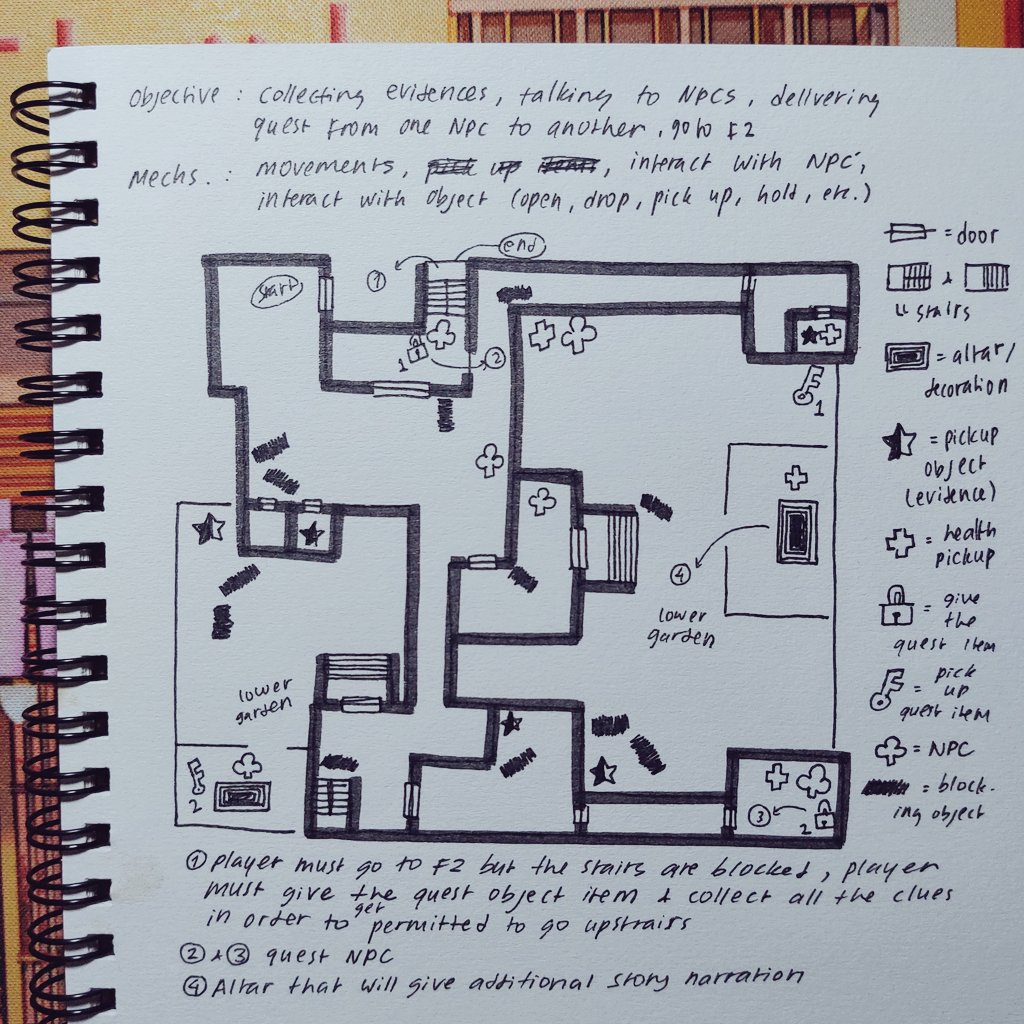 Objective : collecting evidences, talking to NPCs, delivering
quest from one NPC to another, go to F2
Mechs. : movements, pick up item, interact with NPC,
interact with object (open, drop, pick up, hold, etc.)
end
start
1
1
2
1
4
lower
garden
lower
garden
2
3
2
= door
& 
= stairs
= altar/
decoration
= pickup
object
(evidence)
= health
pickup
= give
the
quest item
= pick
up
quest item
= NPC
= block-
ing object
① player must go to F2 but the stairs are blocked, player
must give the quest object item & collect all the clues
in order to get permitted to go upstairs
② & ③ quest NPC
④ Altar that will give additional story narration